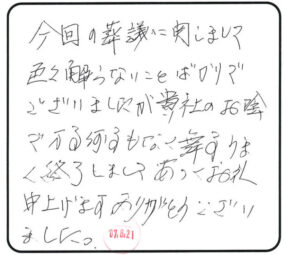 今回の葬議に関しまして
色々解らないことばかりで
ございましたが貴社のお陰
で万事何事もなく無事うま
く終了しましてあつくお礼
申上げますありがとうござい
ました。
07.6.21